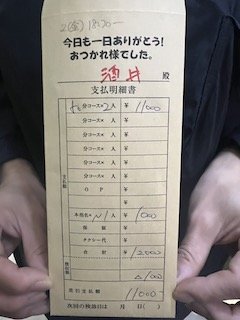 2(金) 18:30−
今日も一日ありがとう!
おつかれ様でした。
酒井 殿
支払明細書
分コース×2人 ¥11000
分コース× 人 ¥
分コース× 人 ¥
分コース× 人 ¥
分コース× 人 ¥
O P ¥
本指名× 1人 ¥1000
保証 ¥
タクシー代 ¥
合計 ¥12000
11000
差引支払額
次回の検診日は 月 日( )